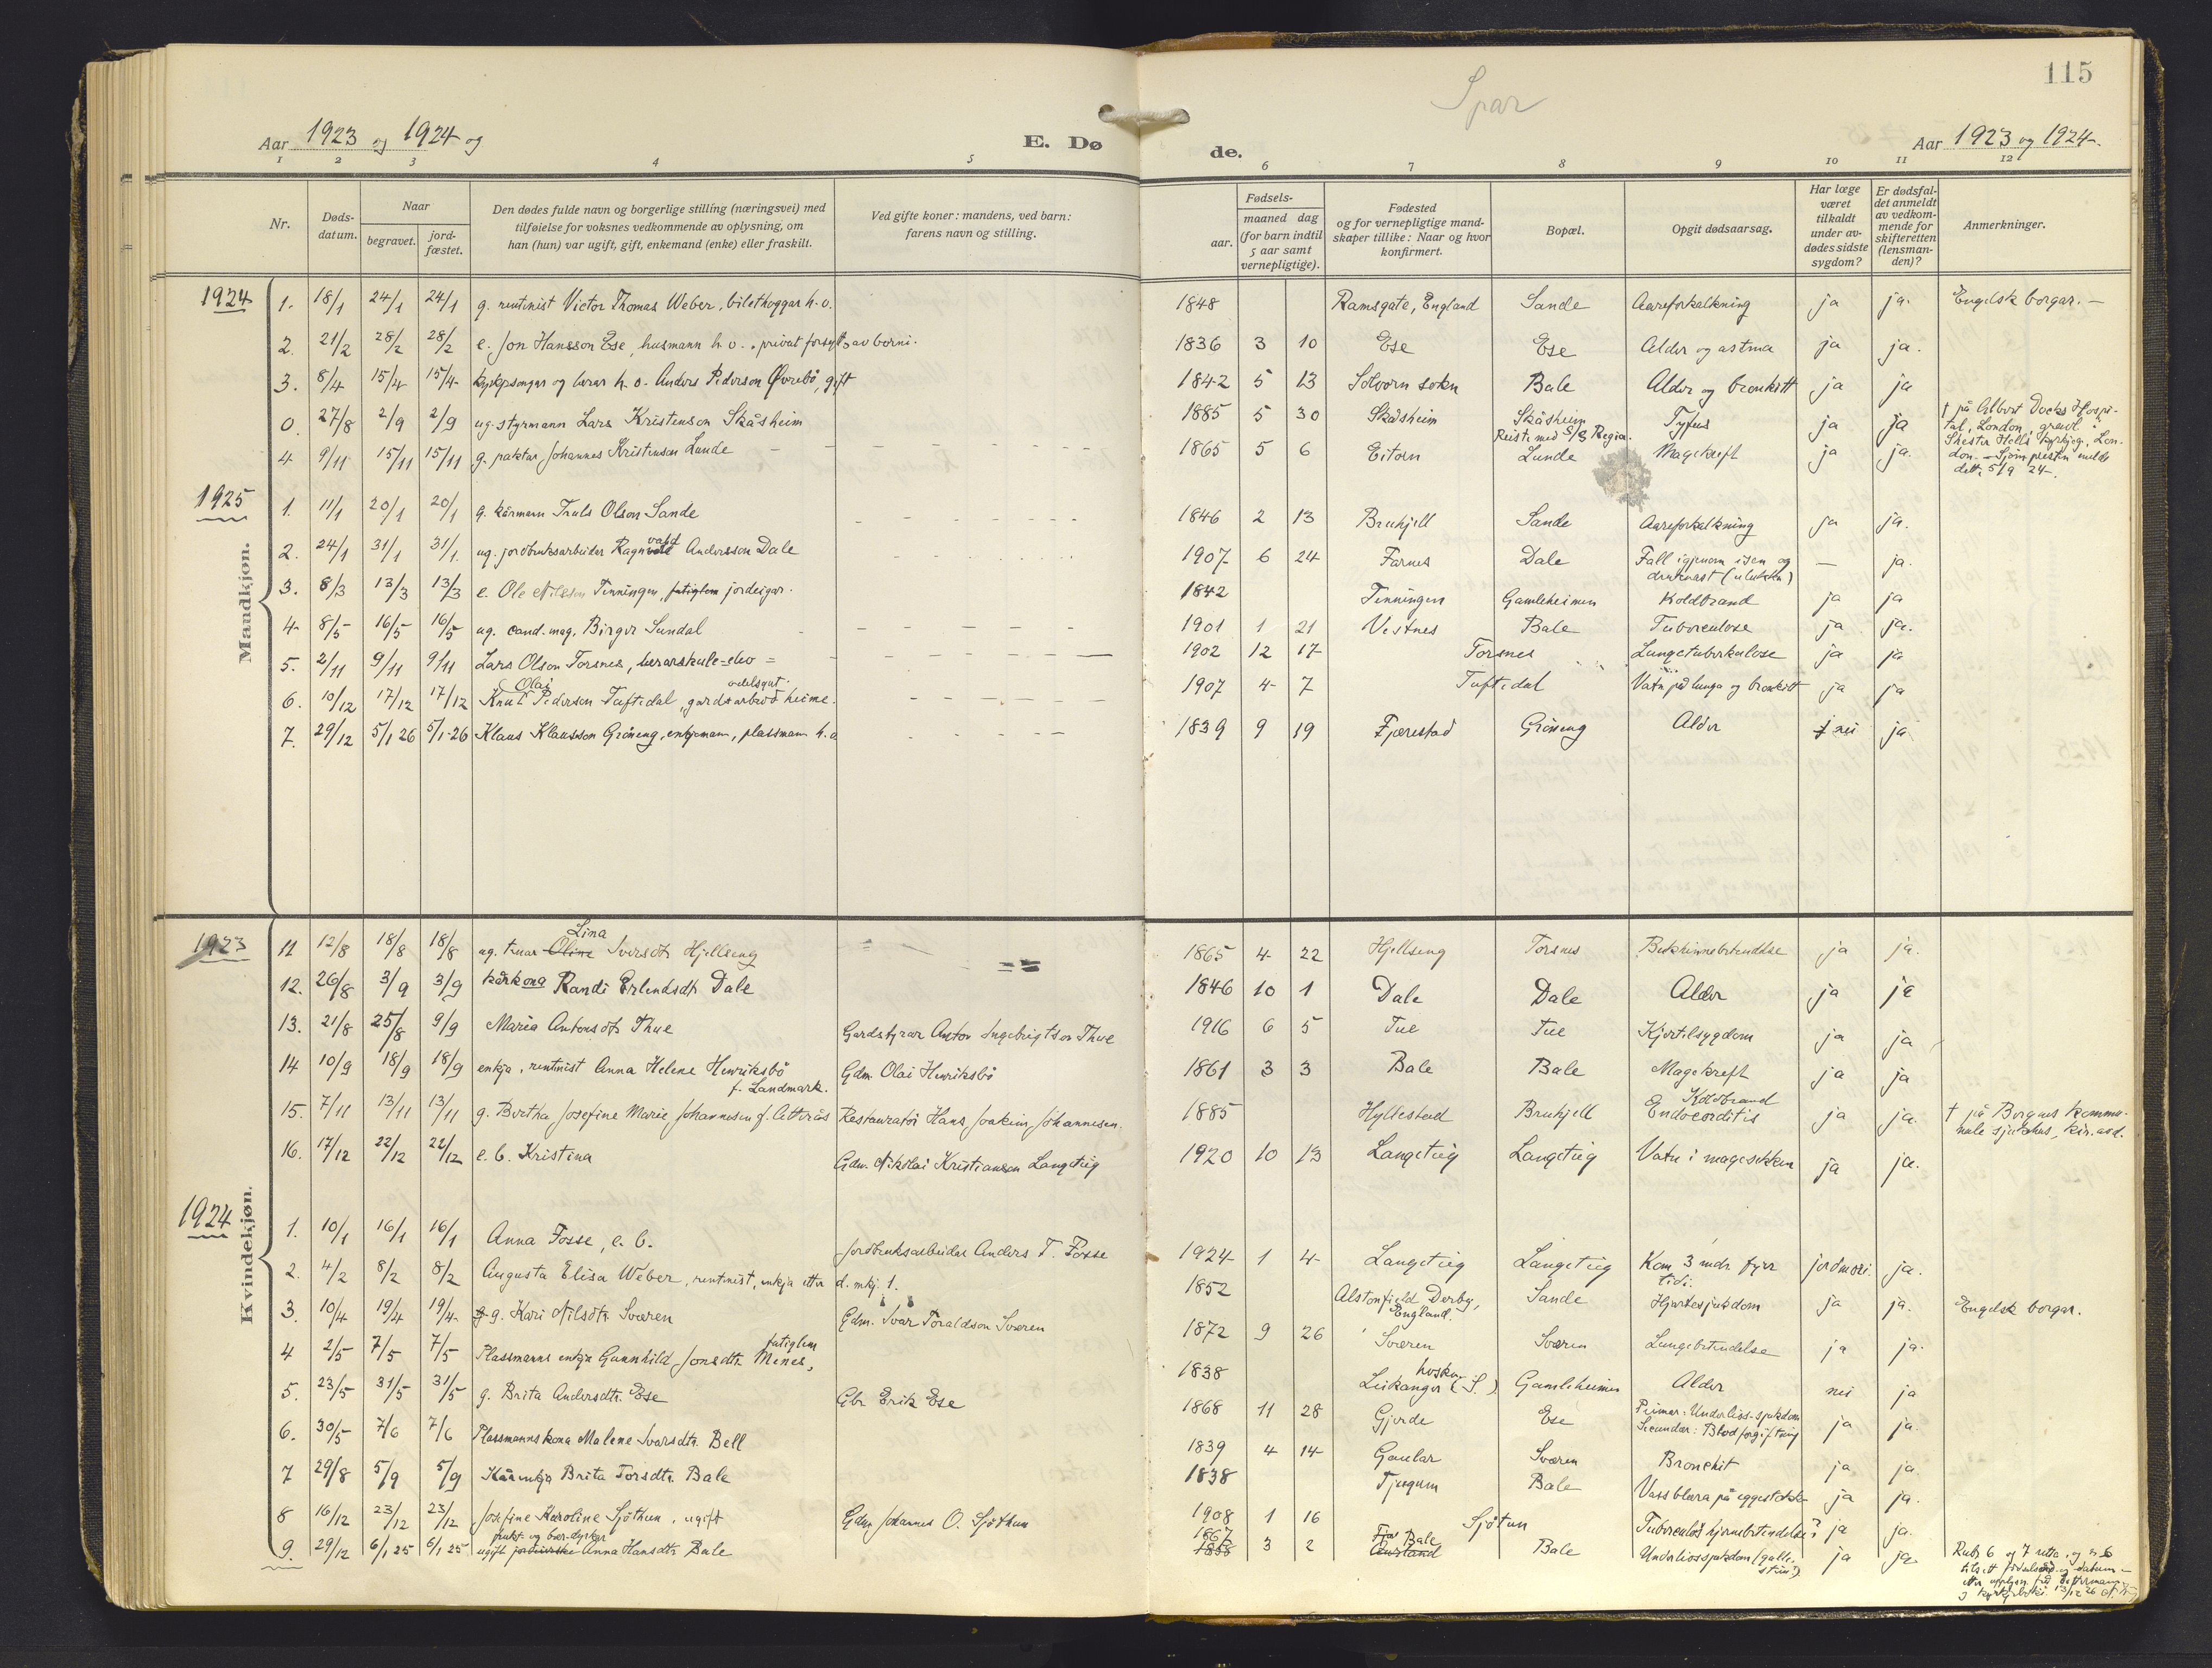 115
Spar
Aar 1923 og 1924 og
E. Dø
de.
Aar 1923 og 1924.
1 2 3 4 5 6 7 8 9 10 11 12
Nr.
Døds-
datum.
Naar
begravet.
jord-
fæstet.
Den dødes fulde navn og borgerlige stilling (næringsvei) med
tilføielse for voksnes vedkommende av oplysning, om
han (hun) var ugift, gift, enkemand (enke) eller fraskilt.
Ved gifte koner: mandens, ved barn:
farens navn og stilling.
Fødsels-
aar.
maaned dag
(for barn indtil
5 aar samt
vernepligtige).
Fødested
og for vernepligtige mand-
skaper tillike: Naar og hvor
konfirmert.
Bopæl.
Opgit dødsaarsag.
Har læge
været
tilkaldt
under av-
dødes sidste
sygdom?
Er dødsfal-
det anmeldt
av vedkom-
mende for
skifteretten
(lensman-
den)?
Anmerkninger.
Mandkjøn.
1924
1. 18/1 24/1 24/1 g. rentenist Victor Thomas Weber, bilethoggar h. o. 1848 Ramsgate, England Sande Aareforkalkning ja ja. Engelsk borgar. —
2. 21/2 28/2 28/2 e. Jon Hansson Ese, husmann h. o. privat forsytt av borni. 1836 3 10 Ese Ese Alder og astma ja ja.
3. 8/4 15/4 15/4 kyrkjesongar og lærar h. o. Anders Pederson Øvrebö, gift 1842 5 13 Solvorn sokn Bale Alder og bronkitt ja ja
0. 27/8 2/9 2/9 ug. styrmann Lars Kristenson Skåsheim 1885 5 30 Skåsheim Skåsheim Tyfus ja ja
Reiste med S/S Regin.
† på Albert Docks Hospi-
tal, London, gravl. i
don. — Sjömpresten melde
dette 5/9 24.
4 9/11 15/11 15/11 g. paktar Johannes Kristenson Lunde 1865 5 6 Eitorn Lunde Magekreft ja ja.
1925
1. 11/1 20/1 20/1 g. kårmann Truls Olson Sande 1846 2 13 Bruhjell Sande Aareforkalkning ja ja.
2. 24/1 31/1 31/1 ug. jordbruksarbeider Ragnvald Andersson Dale 1907 6 24 Farnes Dale Fall igjenom isen og — ja.
druknast (ulukke)
3. 8/3 13/3 13/3 e. Ole Nilsson Tenningen, fatiglem jordeigar. 1842 Tenningen Gamleheimen Koldbrand ja ja
4 8/5 16/5 16/5 ug. cand. mag. Birger Sundal 1901 1 21 Vestnes Bale Tuberculose ja ja.
5. 2/11 9/11 9/11 Lars Olson Torsnes, lærarskule-elev 1902 12 17 Torsnes Lungetuberkulose ja ja
Olai odelsgut.
6. 10/12 17/12 17/12 Knut Pederson Tuftedal, gardsarbeid heime. 1907 4 7 Tuftedal Vatn på lunga og bronkitt ja ja
7. 29/12 5/1 26 5/1-26 Klaus Klausson Gröneng, enkjemann, plassmann h. o 1839 9 19 Fjærestad Gröneng Alder nei ja
Kvindekjøn.
1923
Lina
11 12/8 18/8 18/8 ug. Oline Iversdtr Hjellseng 1865 4 22 Hjellseng Torsnes Bukhinnebetendelse ja ja.
12. 26/8 3/9 3/9 kårkona Randi Erlendsdtr Dale 1846 10 1 Dale Dale Alder ja ja
13. 21/8 25/8 9/9 Maria Antonsdtr Thue Gardstyrar Anton Ingebrigtson Thue 1916 6 5 Tue Tue Kjertelsygdom ja ja
14 10/9 18/9 18/9 enkja, rentenist Anna Helene Henriksbö Gdm. Olai Henriksbö 1861 3 3 Bale Bale Magekreft ja ja
f. Landmark.
Koldbrand
15. 7/11 13/11 13/11 g. Bertha Josefine Marie Johannesen f. Atterås Restauratör Hans Joakim Johannesen. 1885 Hyllestad Bruhjell Endocorditis ja ja. † på Bergens kommu-
nale sjukehus, kir. avd.
16. 17/12 22/12 22/12 e. b. Kristina Gdm. Nikolai Kristianson Langeteig 1920 10 13 Langeteig Langeteig Vatn i magesekken ja ja.
1924
1. 10/1 16/1 16/1 Anna Fosse, e. b. Jordbruksarbeidar Anders T. Fosse 1924 1 4 Langeteig Langeteig Kom 3 mdr. fyrr jordmori. ja.
tidi.
2. 4/2 8/2 8/2 Augusta Elisa Weber, rentenist, enkja etter d. mkj. 1. 1852 Alstonfield Derby, Sande Hjartesjukdom ja ja. Engelsk borgar.
England.
3. 10/4 19/4 19/4 g. Kari Nilsdtr. Sværen Gdm. Ivar Toraldson Sværen 1872 9 26 Sværen Sværen Lungebetendelse ja ja.
fatiglem
4 2/5 7/5 7/5 Plassmanns enkja Gunnhild Jonsdtr. Menes, 1838 Leikanger (S.) Gamleheimen Alder nei ja
5. 23/5 31/5 31/5 g. Brita Andersdtr. Ese Gbr. Erik Ese 1868 11 28 Gjerde Ese Primær: Underlivs-sjukdom ja ja.
Secundær: Blodforgiftning
6. 30/5 7/6 7/6 Plassmannskona Malene Ivarsdtr. Bell 1839 4 14 Gaular Sværen Bronchit ja ja
7 29/8 5/9 5/9 Kårenkja Brita Torsdtr. Bale 1838 Tjugum Bale Vassblæra på eggestokken ja ja.
8 16/12 23/12 23/12 Josefine Karoline Sjöthun, ugift Gdm. Johannes O. Sjöthun 1908 1 16 Sjötun Tuberculös hjernebetendelse? ja ja.
frukt- og bær-dyrkar
1867 Bale
9. 29/12 6/1 25 6/1 25 ugift Anna Hansdtr Bale 3 2 Aurland Bale Underlivssjukdom (galle- ja ja.
stein?)
Rubr 6 og 7 retta, og